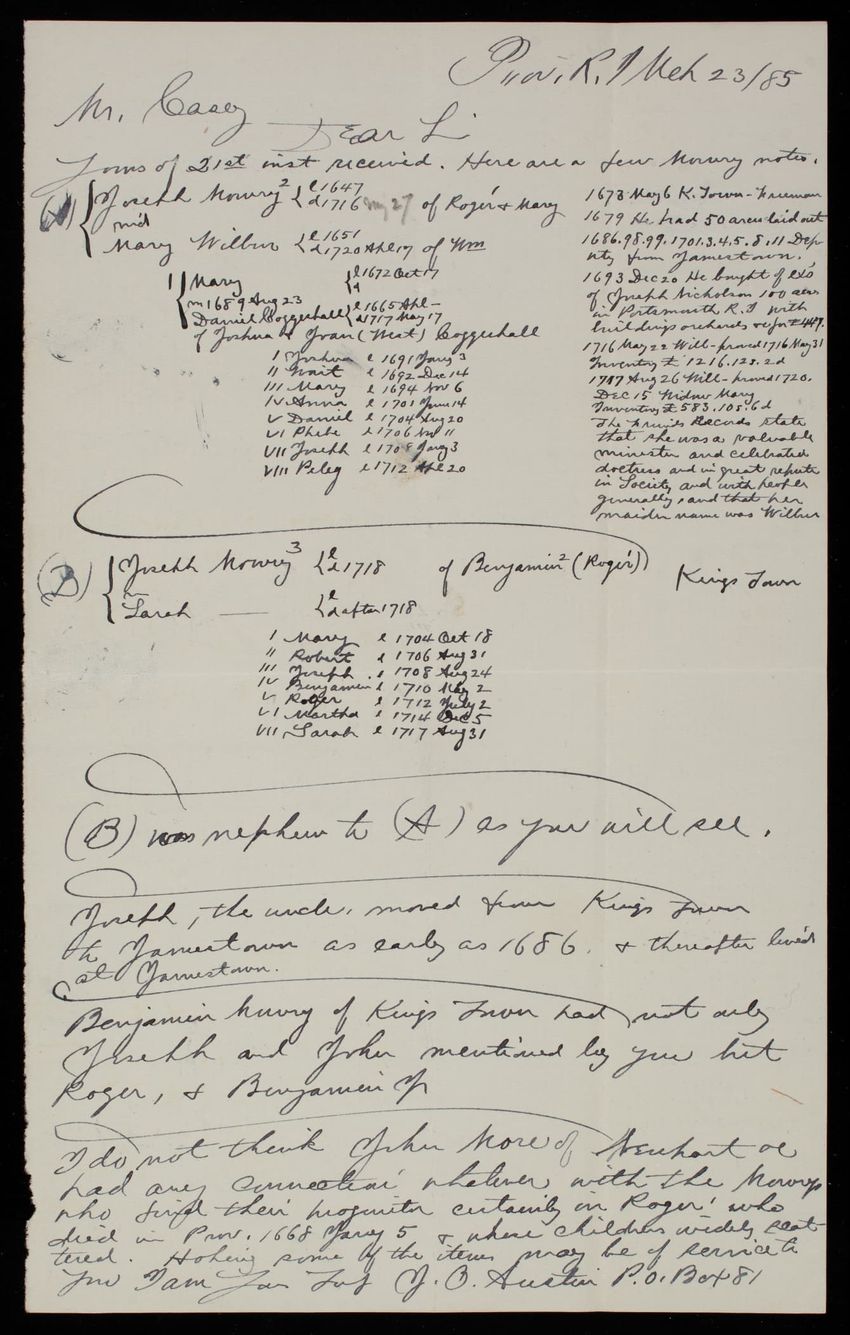 Prov. R. I Mch 23/85
Mr. Casey
Dear Sir
Yours of 21st inst received. Here are a few Mowry notes.
(A) Joseph Mowry² b 1647
d 1716 My 27 of Roger¹ & Mary
m'd
Mary Wilbur b 1651
d 1720 Apl 17 of Wm
I Mary b 1672 Oct 17
d
m 1689 Aug 23
Daniel Coggeshall b 1665 Apl –
d 1717 May 17
of Joshua & Joan (West) Coggeshall
I Joshua b 1691 Jany 3
II Wait b 1692 Dec 14
III Mary b 1694 Nov 6
IV Anna b 1701 June 14
V Daniel b 1704 Aug 20
VI Phebe b 1706 Nov 11
VII Joseph b 1708 Jany 3
VIII Peleg b 1712 Apl 20
1673 May 6 K. Town - Freeman
1679 He had 50 acres laid out
1686.98.99.1701.3.4.5.8.11 Dep
uty from Jamestown.
1693 Dec 20 He bought of exs
of Joseph Nicholson 100 acres
in Portsmouth R. I with
buildings orchards &c for £ 449.
1716 May 22 Will - proved 1716 May 31
Inventory £ 1216. 12s. 2d
1717 Aug 26 Will - proved 1720.
Dec 15 Widow Mary
Inventory £ 583. 10s. 6d
The Friends Records state
that she was a valuable
minister and celebrated
doctress and in great repute
in Society and with people
generally, and that her
maiden name was Wilbur
(B) Joseph Mowry³ b
d 1718 of Benjamin² (Roger¹) Kings Town
m
Sarah — b
d after 1718
I Mary b 1704 Oct 18
II Robert b 1706 Aug 31
III Joseph b 1708 Aug 24
IV Benjamin b 1710 May 2
V Roger b 1712 July 2
VI Martha b 1714 Dec 5
VII Sarah b 1717 Aug 31
(B) was nephew to (A) as you will see.
Joseph, the uncle, moved from Kings Town
to Jamestown as early as 1686. & thereafter lived
at Jamestown.
Benjamin Mowry of Kings Town had not only
Joseph and John mentioned by you but
Roger, & Benjamin Jr
I do not think John More of Newport &c
had any connection whatever with the Mowrys
who find their progenitor certainly in Roger¹ who
died in Prov. 1668 Jany 5 & whose children widely scat
tered. Hoping some of the items may be of service to
you I am Yrs Truly J. O. Austin P.O. Box 81